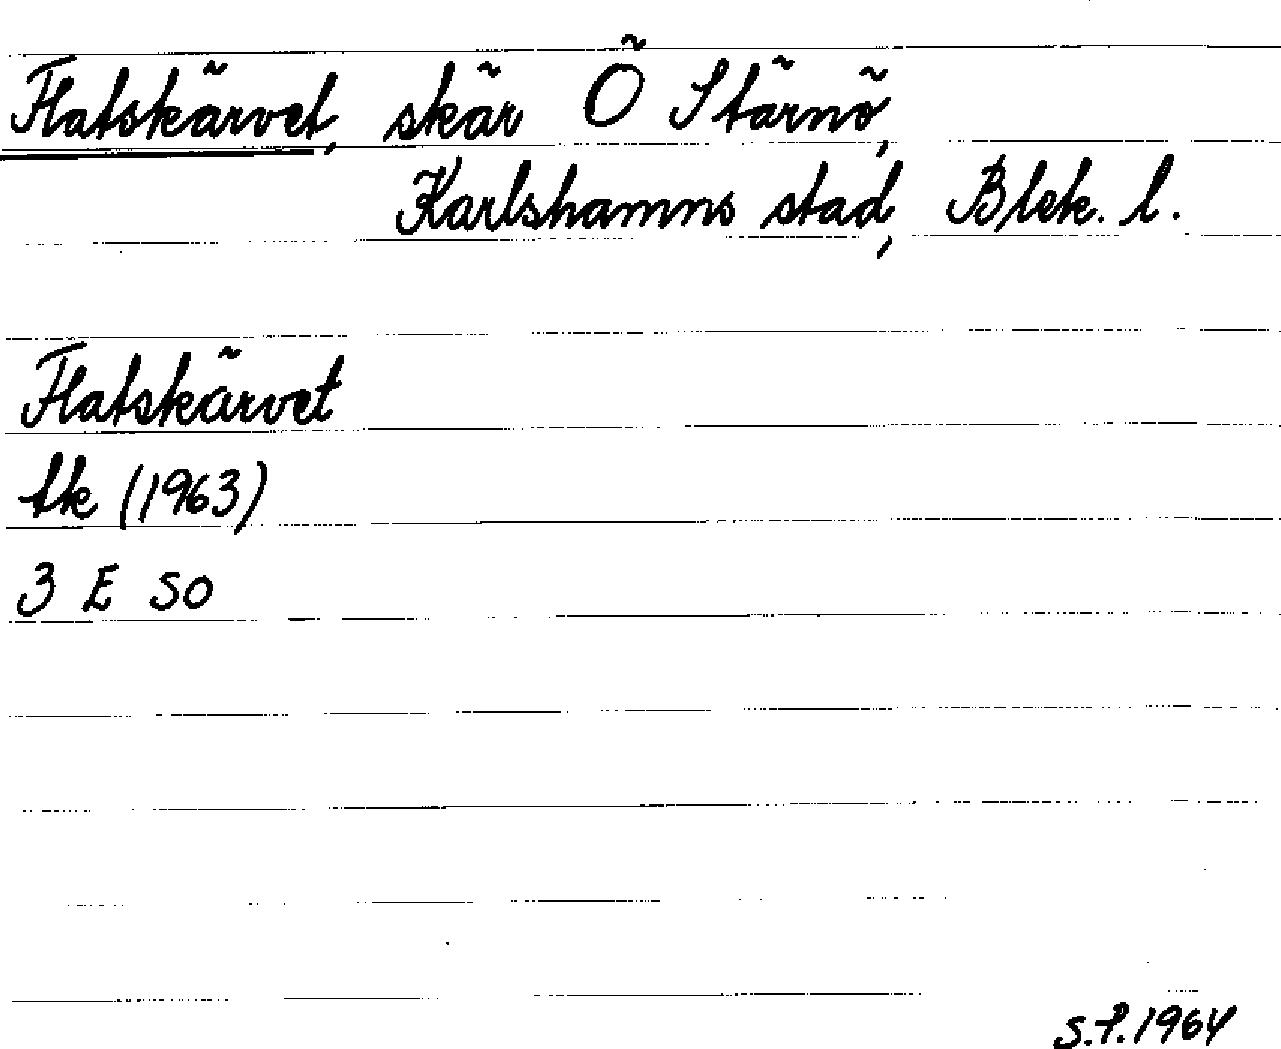 Flatskärvet, skär Ö Stärnö,
Karlshamns stad, Blek. l.
Flatskärvet
tk (1963)
3 E SO
S.P. 1964